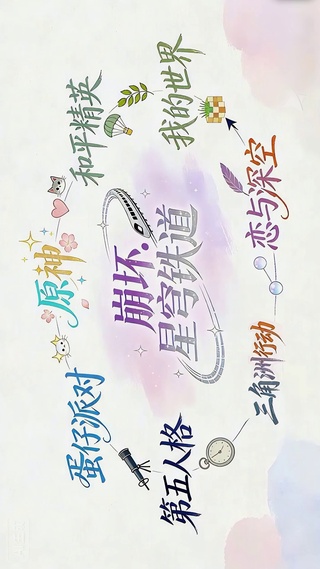 崩坏.
星穹铁道
我的世界
恋与深空
三角洲行动
第五人格
蛋仔派对
原神
和平精英